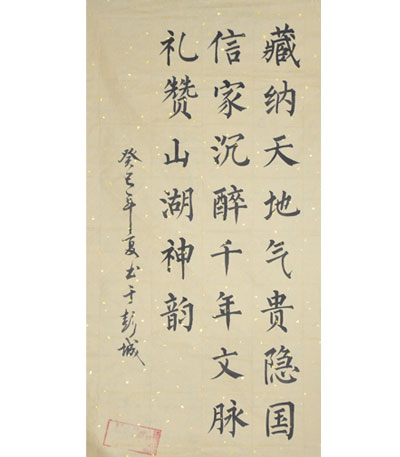 藏纳天地气贵隐国
信家沉醉千年文脉
礼赞山湖神韵
癸巳年夏书于彭城